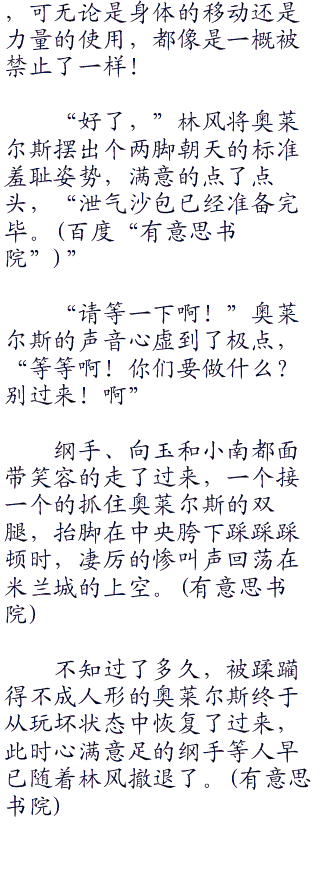 ，可无论是身体的移动还是
力量的使用，都像是一概被
禁止了一样！
“好了，”林风将奥莱
尔斯摆出个两脚朝天的标准
羞耻姿势，满意的点了点
头，“泄气沙包已经准备完
毕。(百度“有意思书
院”)”
“请等一下啊！”奥莱
尔斯的声音心虚到了极点，
“等等啊！你们要做什么？
别过来！啊”
纲手、向玉和小南都面
带笑容的走了过来，一个接
一个的抓住奥莱尔斯的双
腿，抬脚在中央胯下踩踩踩
顿时，凄厉的惨叫声回荡在
米兰城的上空。(有意思书
院)
不知过了多久，被蹂躏
得不成人形的奥莱尔斯终于
从玩坏状态中恢复了过来，
此时心满意足的纲手等人早
已随着林风撤退了。(有意思
书院)